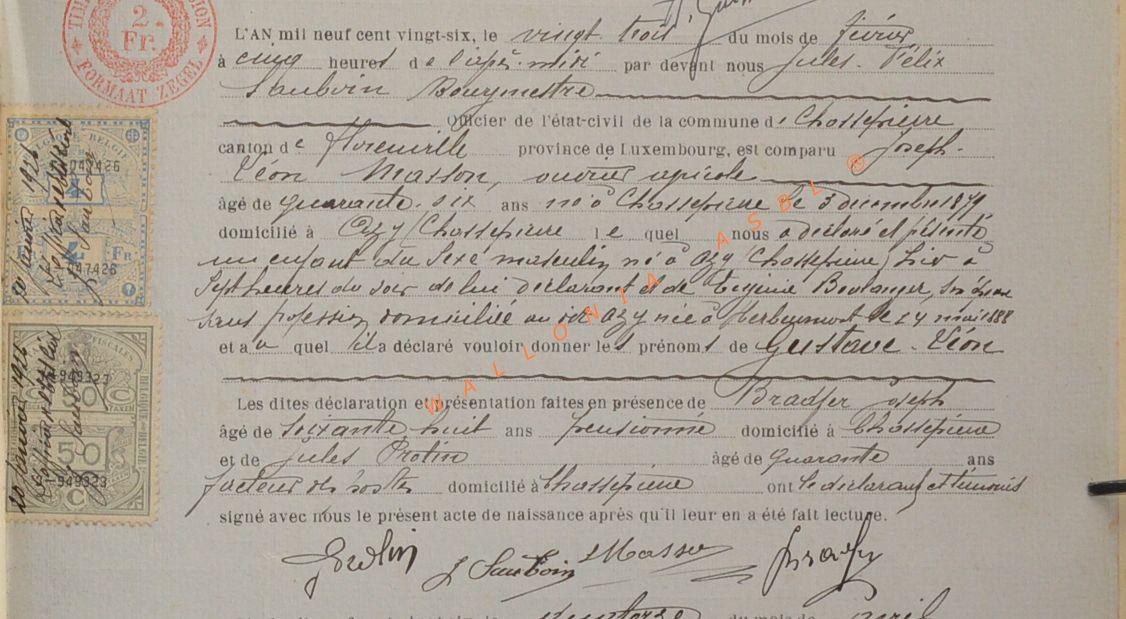 2 Fr.
FORMAAT ZEGEL
L'AN mil neuf cent vingt-six, le vingt trois du mois de février
à cinq heures de l'après-midi par devant nous Jules-Félix
Sauboin Bourgmestre
Officier de l'état-civil de la commune de Chassepierre
canton de Florenville province de Luxembourg, est comparu Joseph-
Léon Masson, ouvrier agricole
âgé de quarante-six ans né à Chassepierre le 3 décembre 1879
domicilié à Azy (Chassepierre) lequel nous a déclaré et présenté
un enfant du sexe masculin né à Azy Chassepierre, hier à
sept heures du soir de lui déclarant et de Eugénie Boulanger, son épouse
sans profession domiciliée au dit Azy née à Herbeumont le 14 mai 1888
et auquel il a déclaré vouloir donner les prénoms de Gustave-Léon
Les dites déclaration et présentation faites en présence de Bradfer Joseph
âgé de soixante huit ans pensionné domicilié à Chassepierre
et de Jules Protin âgé de quarante ans
facteur des postes domicilié à Chassepierre ont le déclarant et témoins
signé avec nous le présent acte de naissance après qu'il leur en a été fait lecture.
J Sauboin
du mois de avril
WALLONIA ASBL ©
047426
047426
949323
50
C
949323